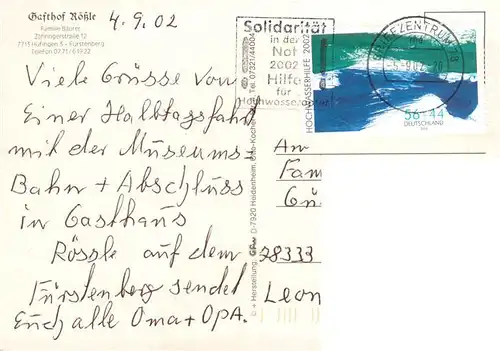 Gasthof Rößle
Familie Bäurer
Zähringerstraße 12
7713 Hüfingen 3 - Fürstenberg
Telefon 0771/61922
4.9.02
Viele Grüsse von
Einer Halbtagsfahrt
mit der Museums=
Bahn + Abschluss
in Gasthaus
Rössle auf dem
Fürstenberg sendet
Euch alle Oma + OPA.
Solidarität
in der
Not
2002
Hilfe
für
Hochwasseropfer
BRIEFZENTRUM 78
-5.-9.02
HOCHWASSERHILFE 2002
56+44
DEUTSCHLAND
An
Fam
Gü
Leon